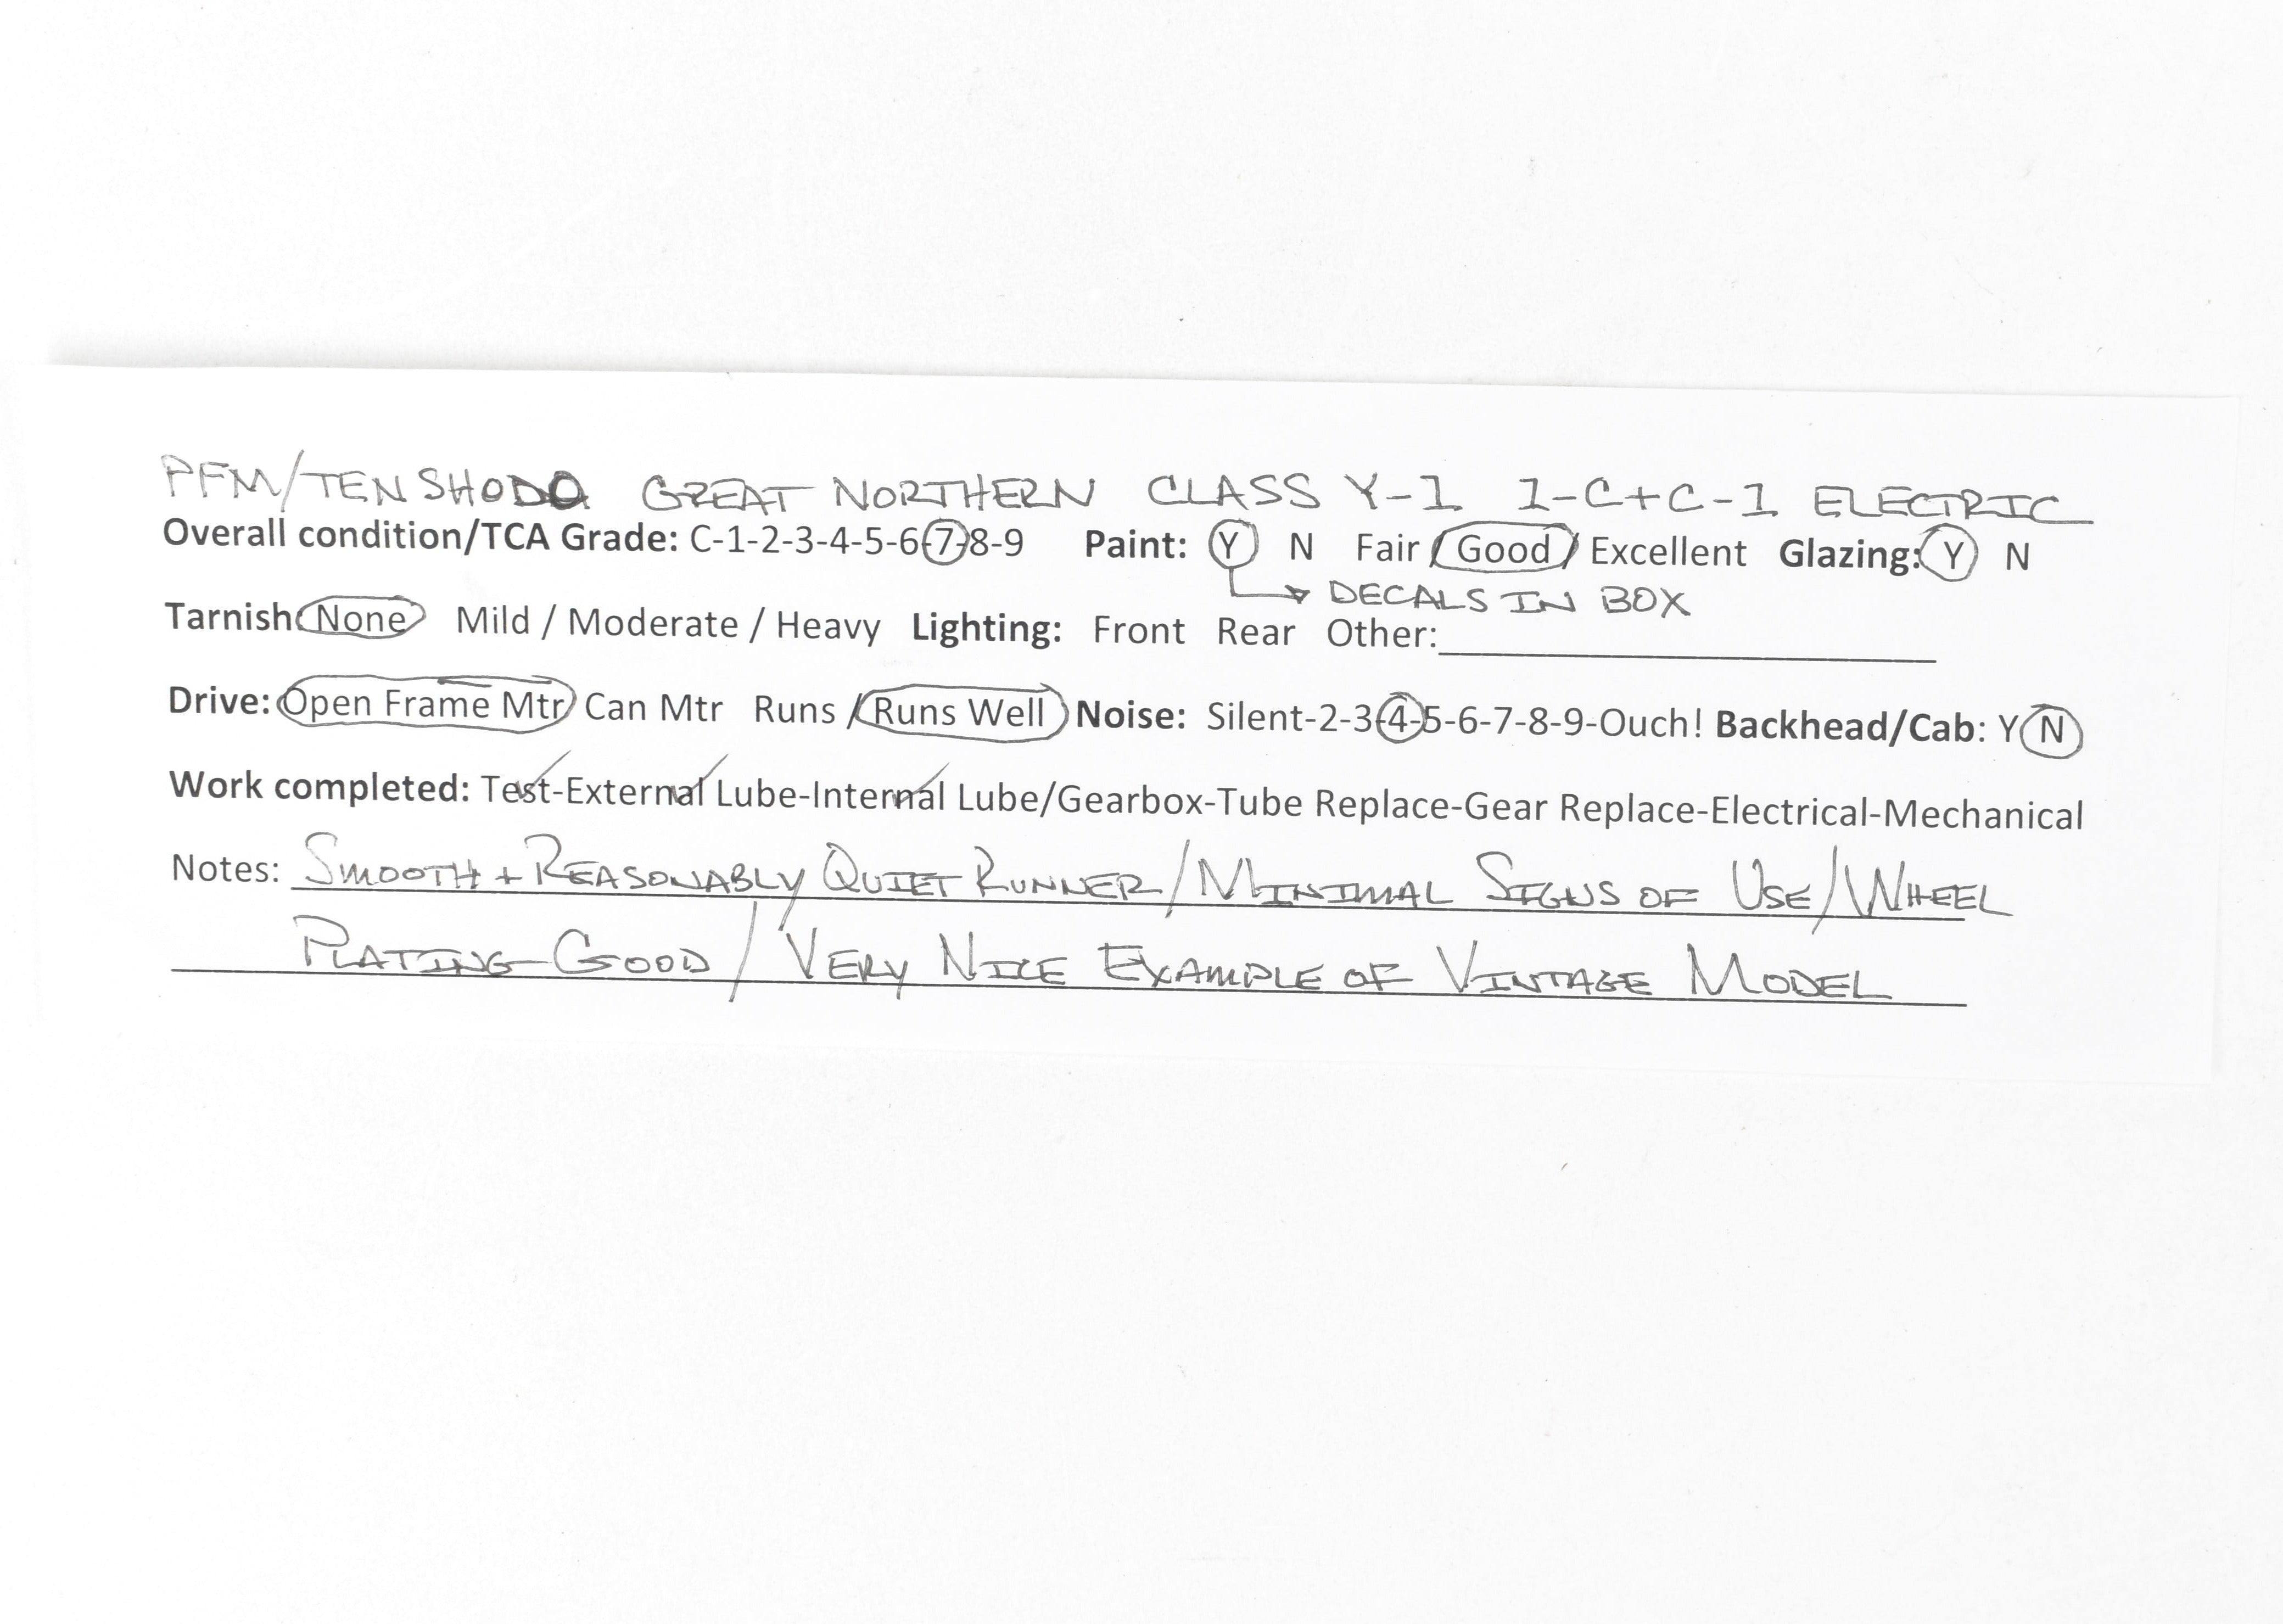 PFM/TENSHODO GREAT NORTHERN CLASS Y-1 1-C+C-1 ELECTRIC
Overall condition/TCA Grade: C-1-2-3-4-5-6-7-8-9 Paint: Y N Fair / Good / Excellent Glazing: Y N
DECALS IN BOX
Tarnish: None Mild / Moderate / Heavy Lighting: Front Rear Other:
Drive: Open Frame Mtr Can Mtr Runs / Runs Well Noise: Silent-2-3-4-5-6-7-8-9-Ouch! Backhead/Cab: Y N
Work completed: Test-External Lube-Internal Lube/Gearbox-Tube Replace-Gear Replace-Electrical-Mechanical
Notes: SMOOTH + REASONABLY QUIET RUNNER/MINIMAL SIGNS OF USE/WHEEL
PLATING GOOD/VERY NICE EXAMPLE OF VINTAGE MODEL